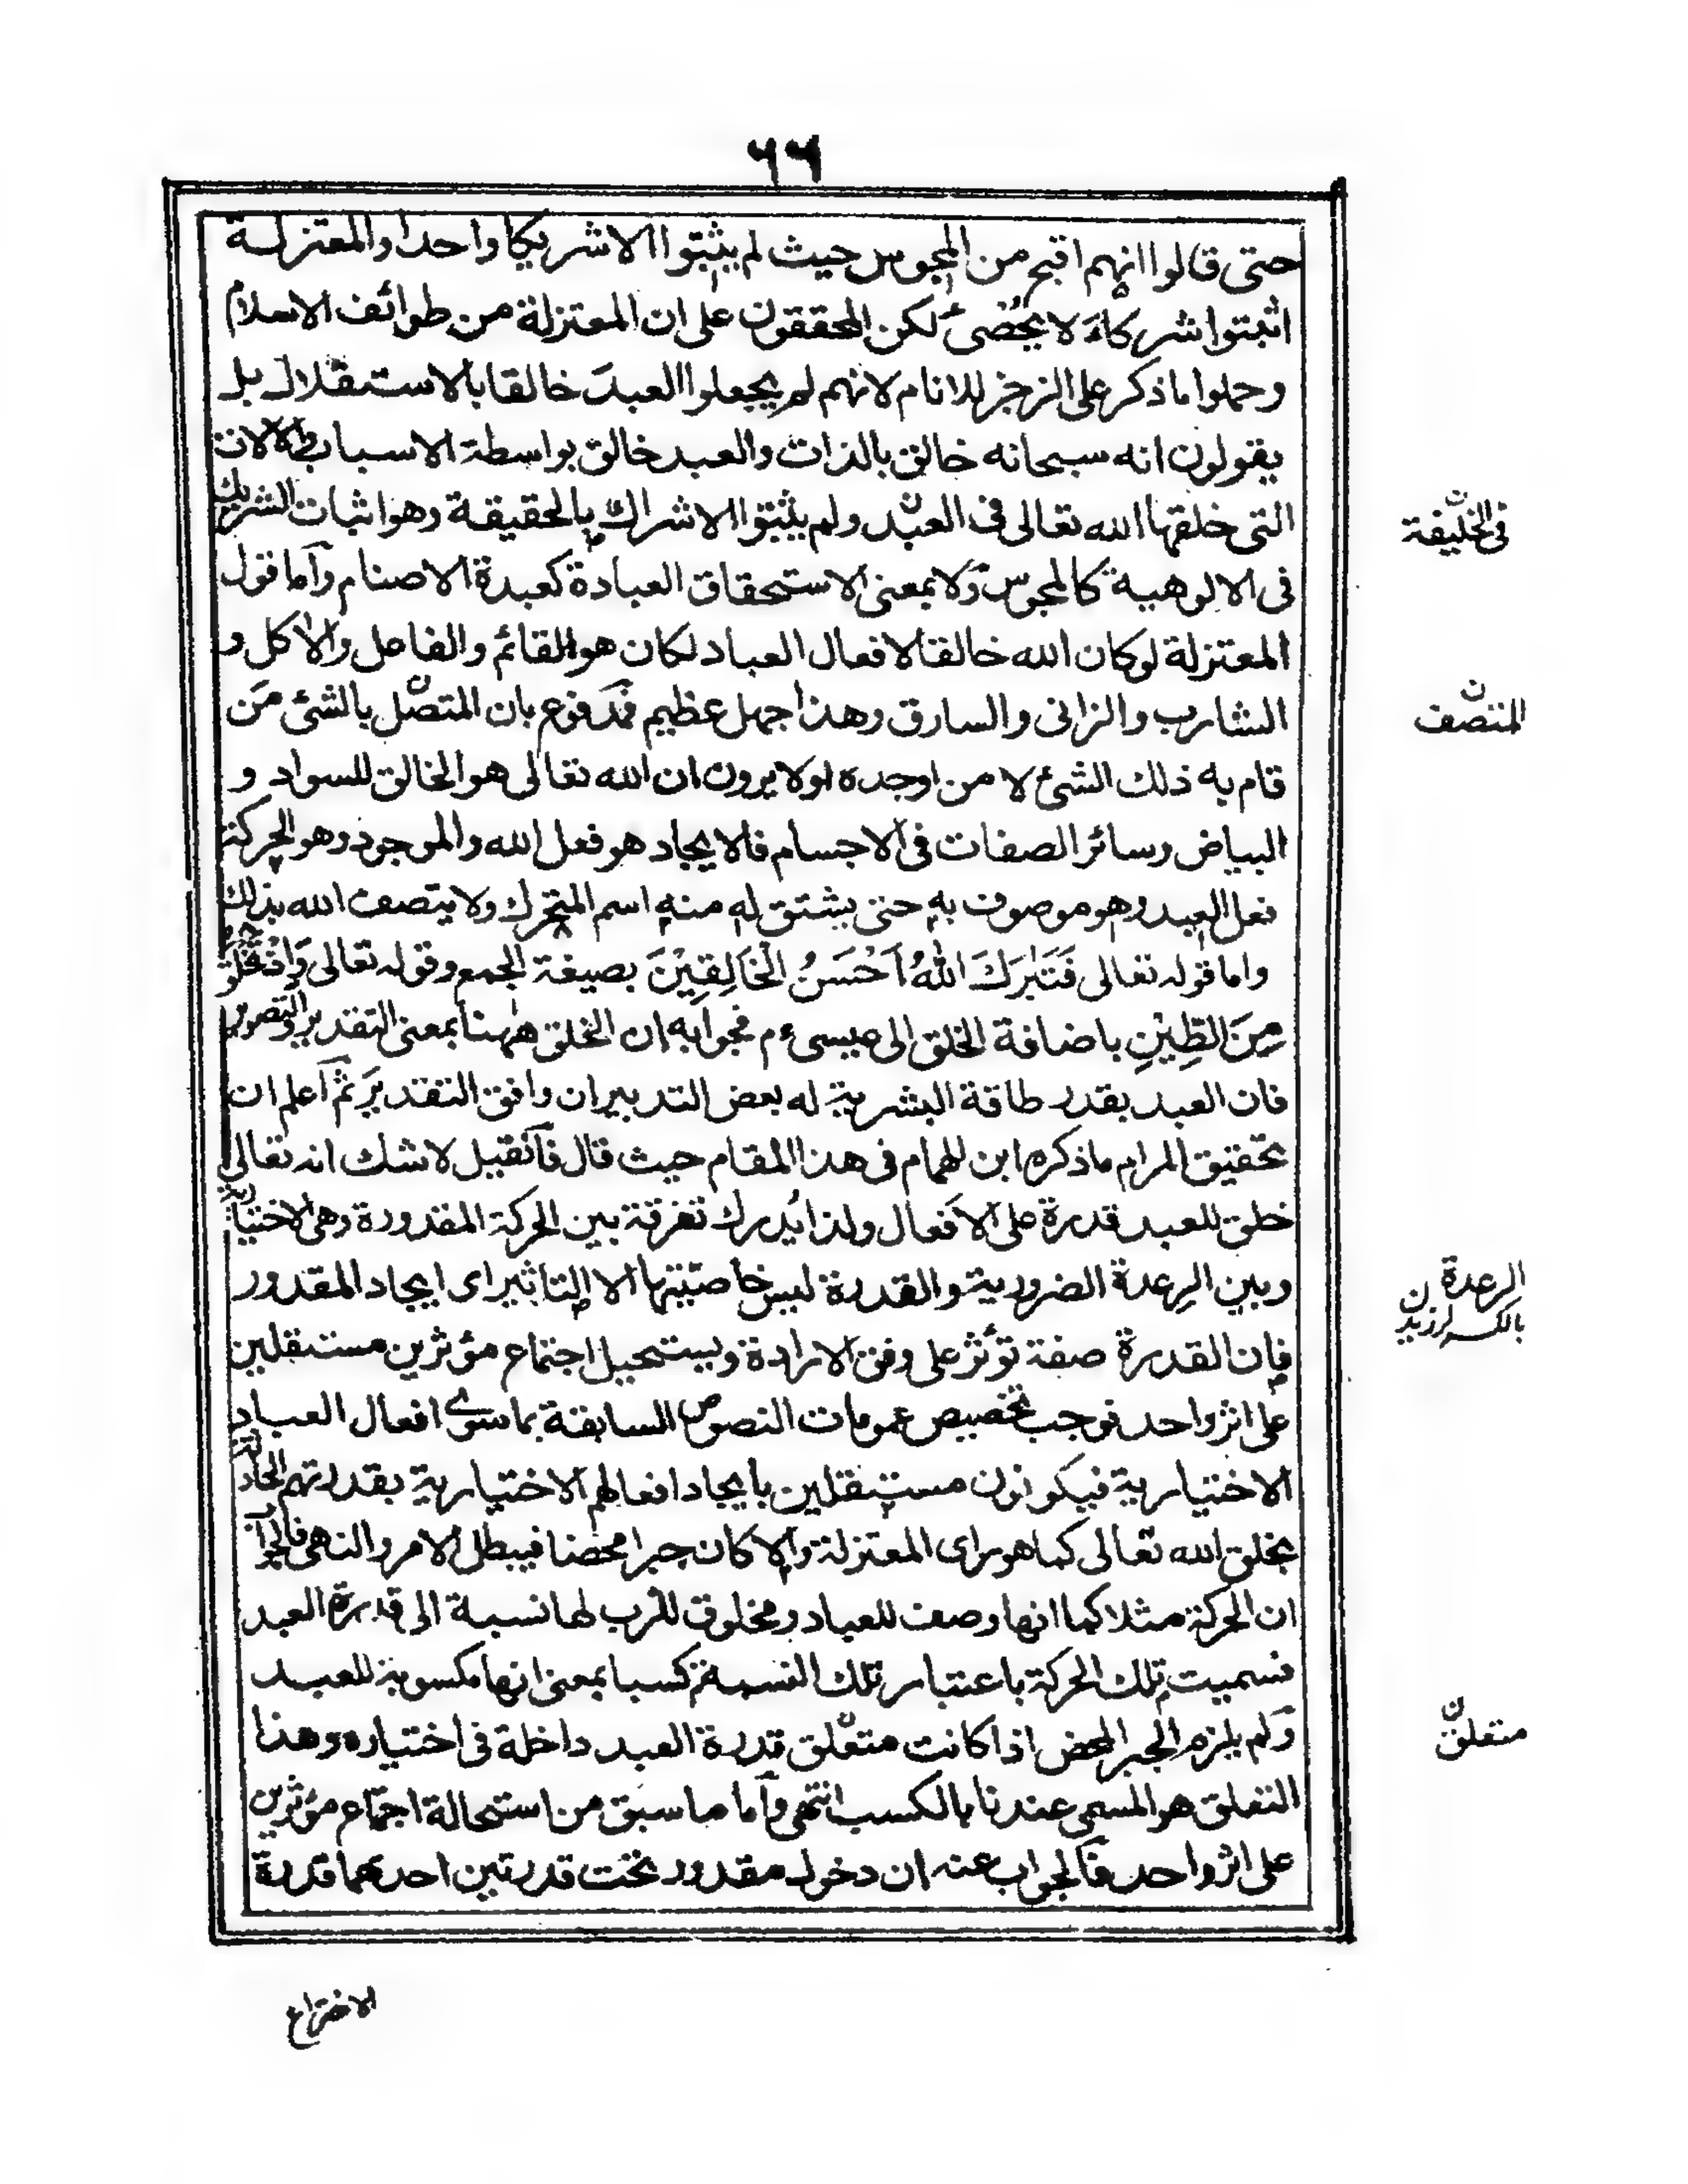 ٦٦
حتى قالوا انهم اقبح من المجوس حيث لم يثبتوا الا شريكا واحدا والمعتزلة
اثبتوا شركاءَ لا يحُصٰى لكن المحققون على ان المعتزلة من طوائف الاسلام
وحملوا ما ذكر على الزجر للانام لانهم لم يجعلوا العبدَ خالقا بالاستقلال بل
يقولون انه سبحانه خالق بالذات والعبد خالق بواسطة الاسباب والالات
التى خلقها الله تعالى فى العبد ولم يثبتوا الاشراك بالحقيقة وهو اثبات الشريك
فى الالوهية كالمجوس ولا بمعنى الاستحقاق العبادة كعبدة الاصنام وآما قول
المعتزلة لو كان الله خالقا لافعال العباد لكان هو القائم والقاعد والاٰكل و
الشارب والزانى والسارق وهذا جهل عظيم فمدفوع بان المتصل بالشئ من
قام به ذلك الشئ لا من اوجده اولا يرون ان الله تعالى هو الخالق للسواد و
البياض وسائر الصفات فى الاجسام فالايجاد هو فعل الله والموجود وهو الحركة
فعل العبد وهو موصوف به حتى يشتق له منه اسم المتحرك ولا يتصف الله بذلك
واما قوله تعالى فَتَبٰرَكَ اللّٰهُ اَحْسَنُ الْخَالِقِيْنَ بصيغة الجمع وقوله تعالى وَاِذْ تَخْلُقُ
مِنَ الطِّيْنِ باضافة الخلق الى عيسى ءم فجوابه ان الخلق هٰهنا بمعنى التقدير والتصوير
فان العبد بقدر طاقة البشرية له بعض التدبير ان وافق التقدير ثم آعلم ان
تحقيق المرام ما ذكره ابن الهمام فى هذا المقام حيث قال فآن قيل لا شك انه تعالى
خلق للعبد قدرة على الافعال ولذا يُدرك تفرقة بين الحركة المقدورة وهى الاختيارية
وبين الرعدة الضرورية والقدرة ليس خاصيتها الا التاثير اى ايجاد المقدور
فان القدرة صفة تؤثر على وفق الارادة ويستحيل اجتماع مؤثرين مستقلين
على اثر واحد فوجب تخصيص عمومات النصوص السابقة بما سوى افعال العباد
الاختيارية فيكونون مستقلين بايجاد افعالهم الاختيارية بقدرتهم الحادثة
بخلق الله تعالى كما هو راى المعتزلة والا كان جبرا محضا فيبطل الامر والنهى فالجواب
ان الحركة مثلا كما انها وصف للعباد ومخلوق للرب لها نسبة الى قدرة العبد
فسميت تلك الحركة باعتبار تلك النسبة كسبا بمعنى انها مكسوبة للعبد
ولم يلزم الجبر المحض اذا كانت متعلق قدرة العبد داخلة فى اختياره وهذا
التعلق هو المسمى عندنا بالكسب انتهى وآما ما سبق من استحالة اجتماع مؤثرين
على اثر واحد فآلجواب عنه ان دخول مقدور تحت قدرتين احدهما قدرة
الاختراع
فى الخليقة ن
المتصف ن
الرعدة
بالكسر لرزيدن
متعلق ن